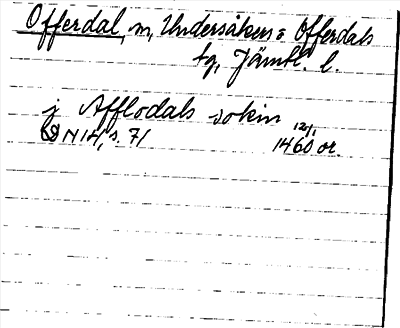 Offerdal, sn, Undersåkers o Offerdals
tg, Jämtl. l.
j Afflodals sokin
N 14, s. 71 1460 12/1 or.